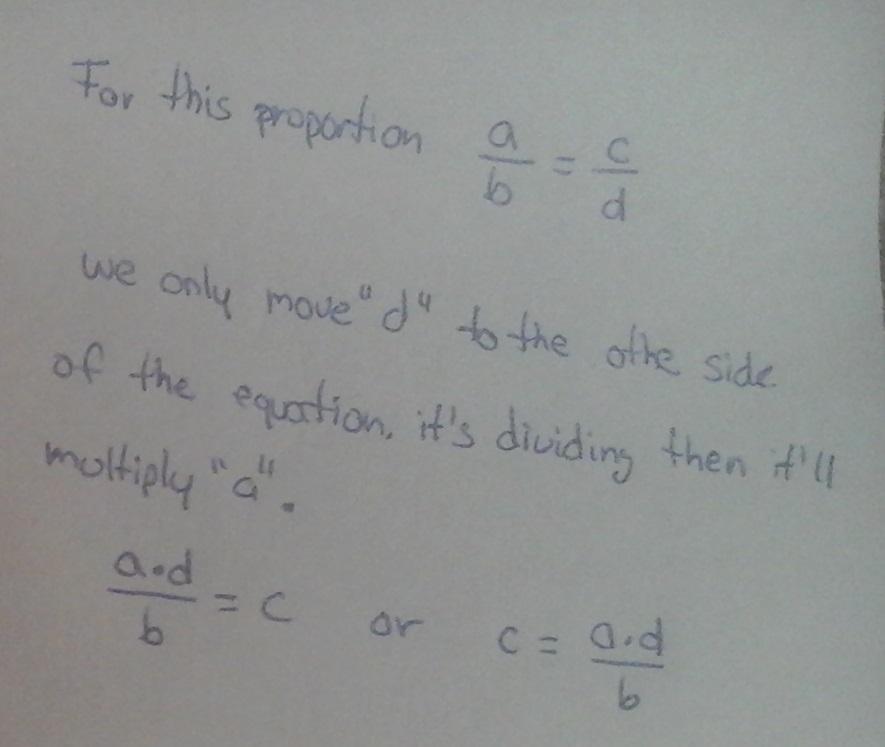 For this proportion a/b = c/d
we only move "d" to the othe side
of the equation, it's dividing then it'll
multiply "a".
a·d/b = c or c = a·d/b